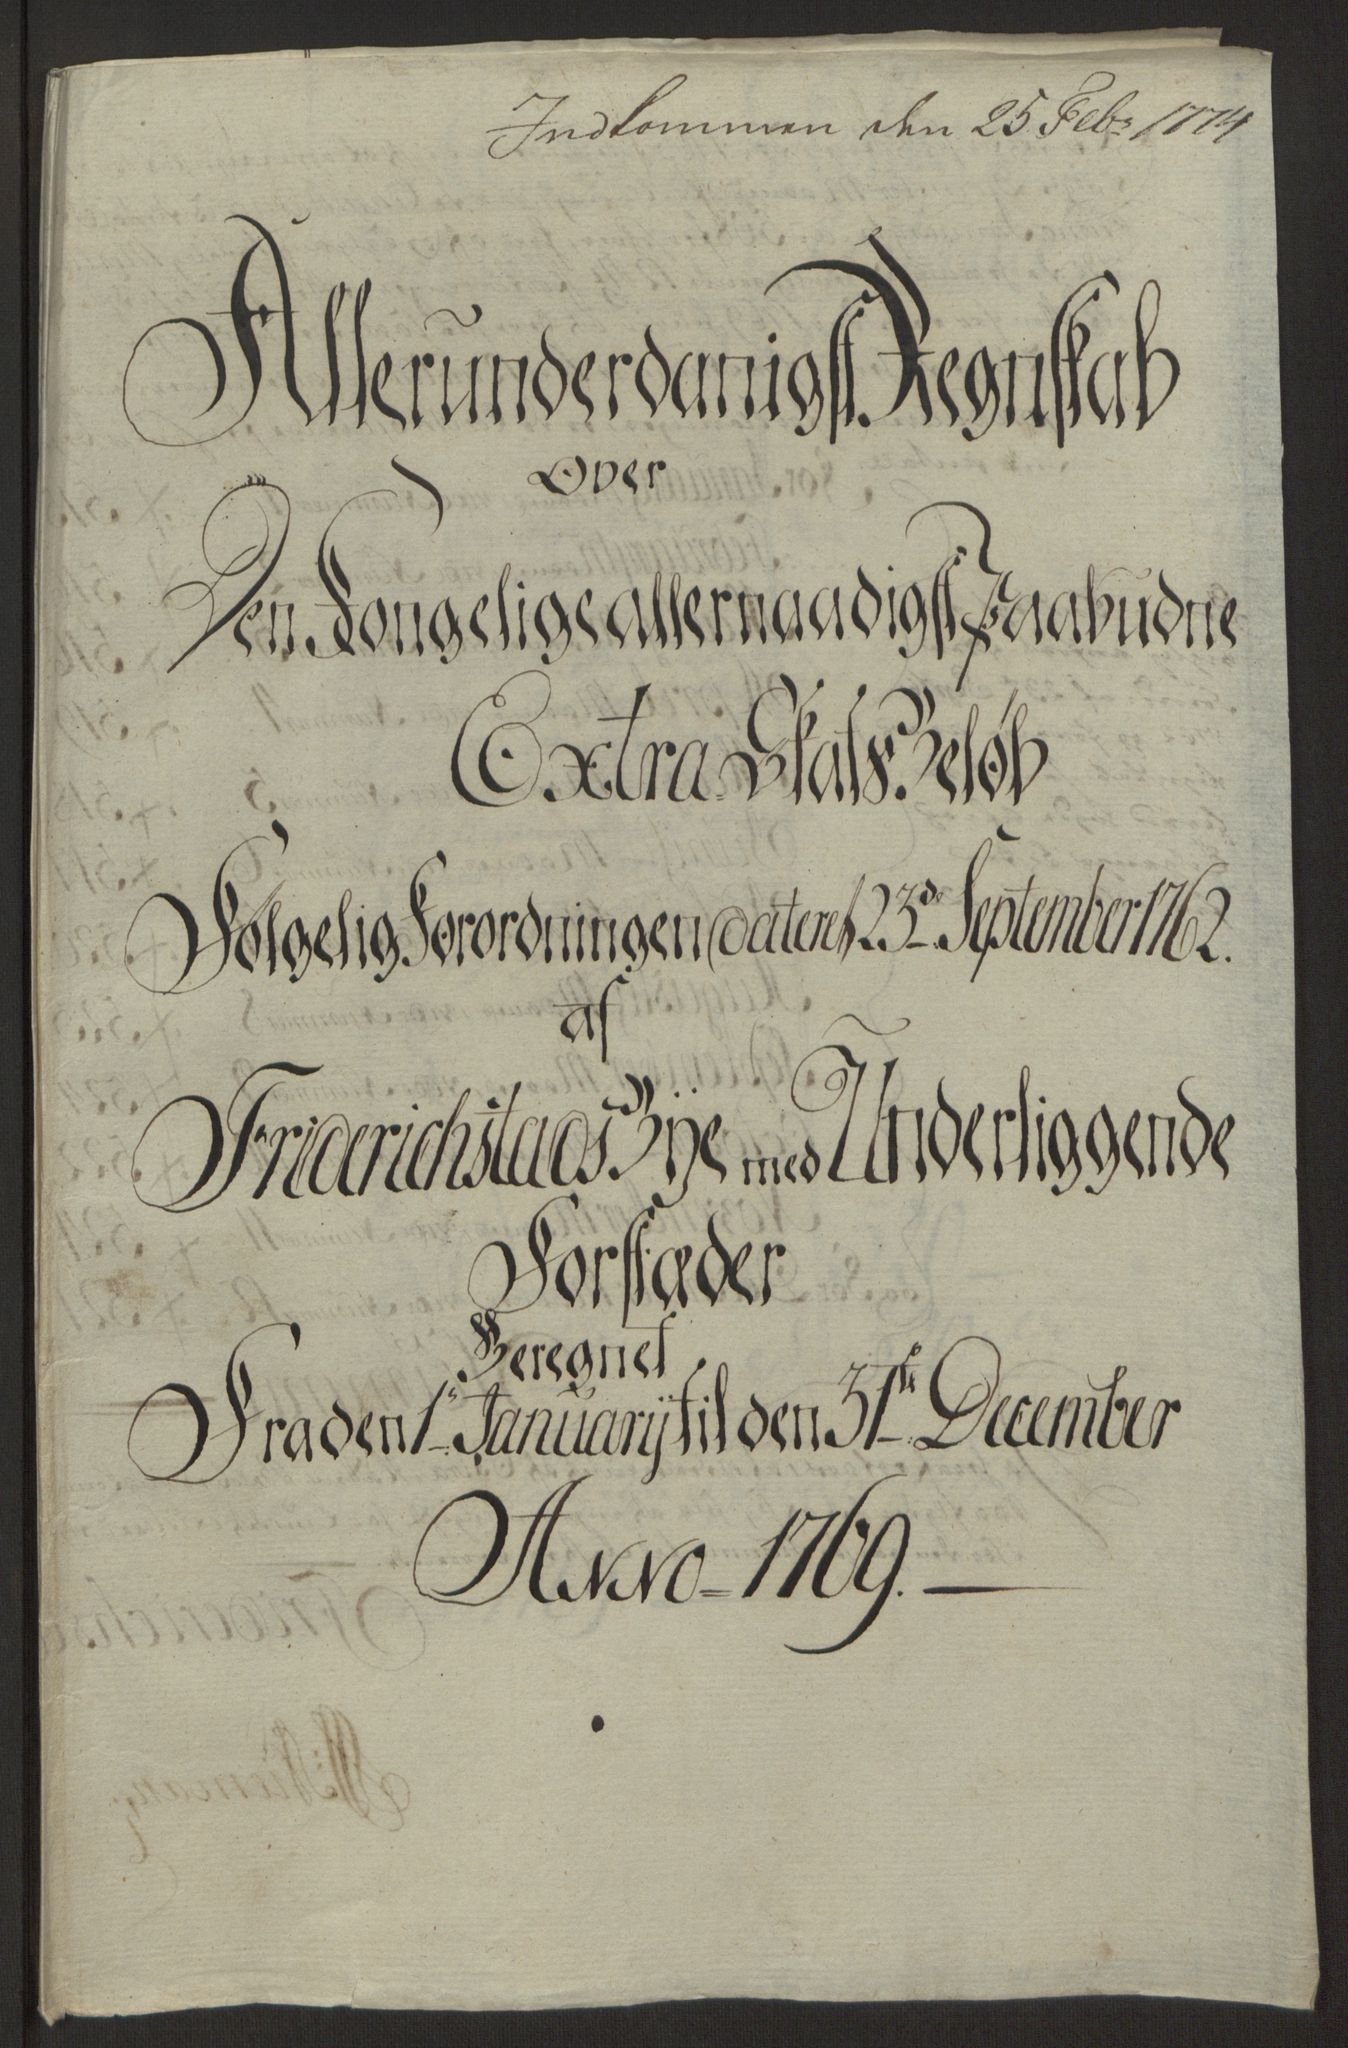 Indkommen den 25 Febr 1774
Allerunderdanigst Regnskab
Over
Den Kongelige allernaadigst Paabudne
Extra Skats Beløb
Følgelig Forordningen dateret 23de September 1762.
af
Friderichstads Bÿe med Underliggende
Forstæder
Beregnet
Fra den 1te Januarÿ til den 31te December
Anno = 1769.